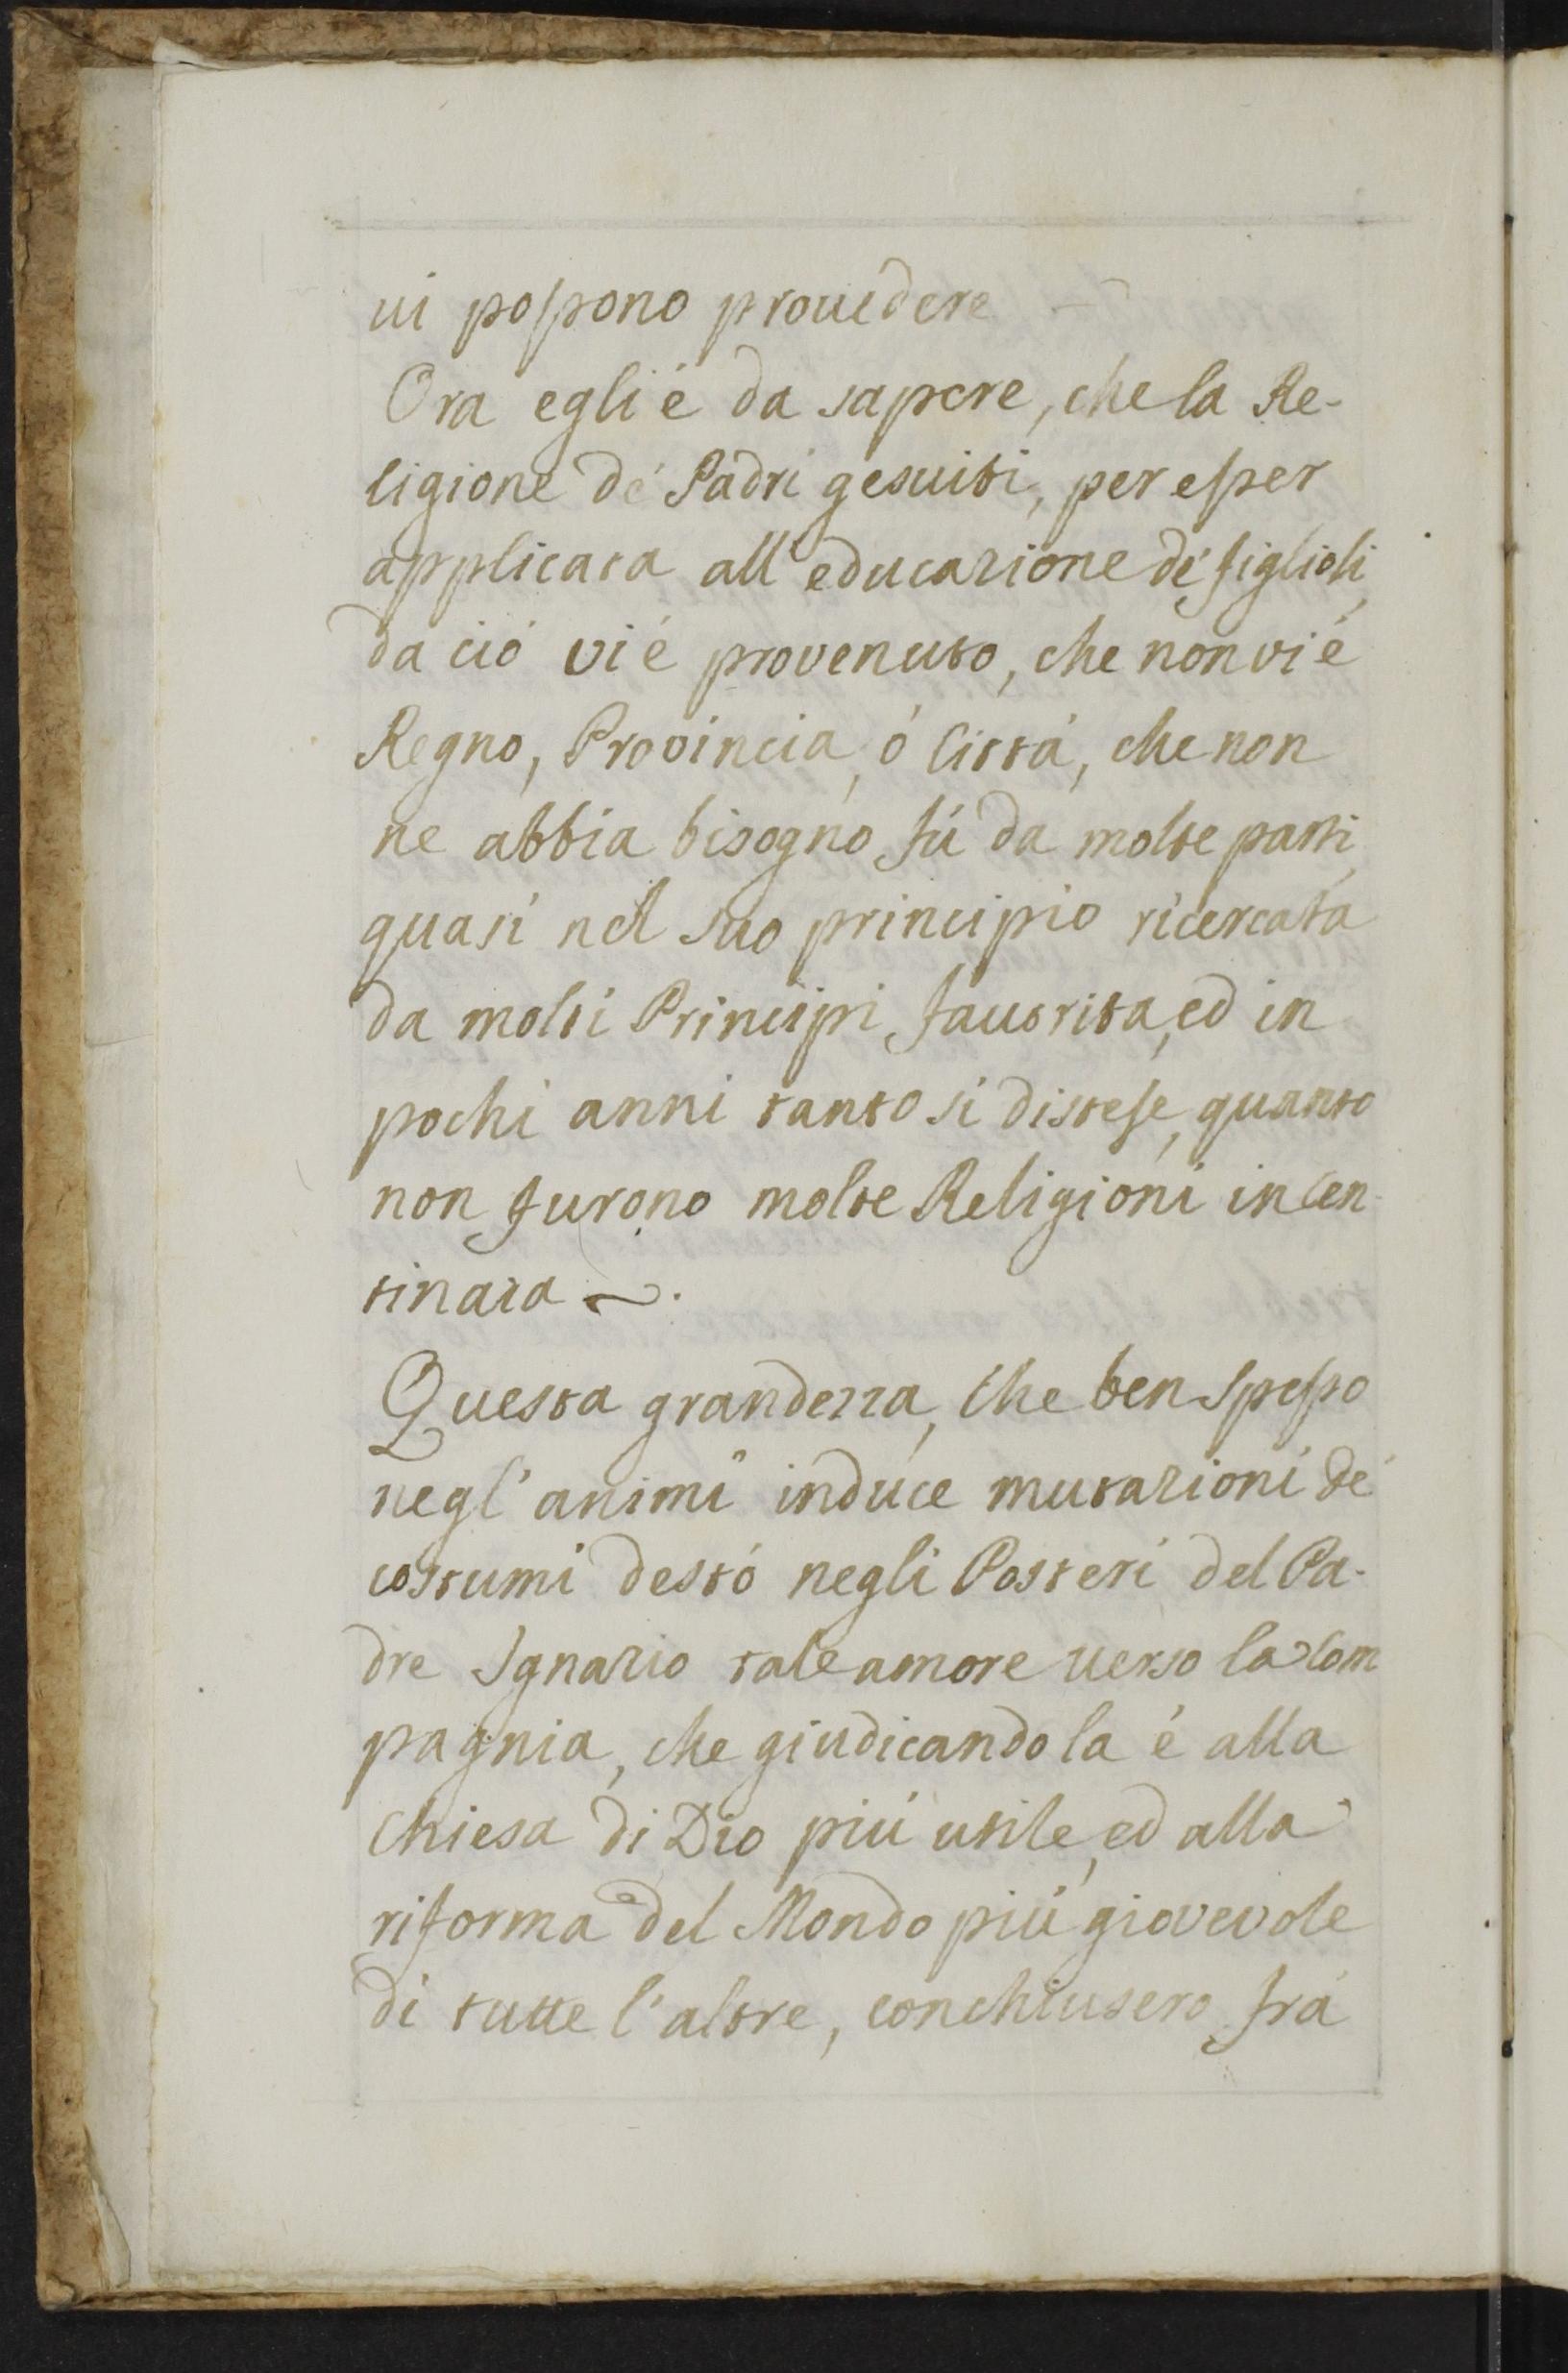 ui possono prouedere
Ora egli é da sapere, che la Re-
ligione dé Padri gesuiti, per esser
applicata all'educazione dé figlioli,
da ció vi é provenuto, che non vi é
Regno, Provincia, ó Cittá, che non
ne abbia bisogno, fú da molte parti
quasi nel suo principio ricercata
da molti Principi fauorita, ed in
pochi anni tanto si distese, quanto
non furono molte Religioni in Cen-
tinara ~.
Questa grandezza, che ben spesso
negl'animi induce mutazioni dé
costumi destó negli Posteri del Pa-
dre Ignazio tale amore uerso la Com
pagnia, che giudicandola é alla
Chiesa di Dio piú utile, ed alla
riforma del Mondo piú giovevole
di tutte l'altre, conchiusero frá